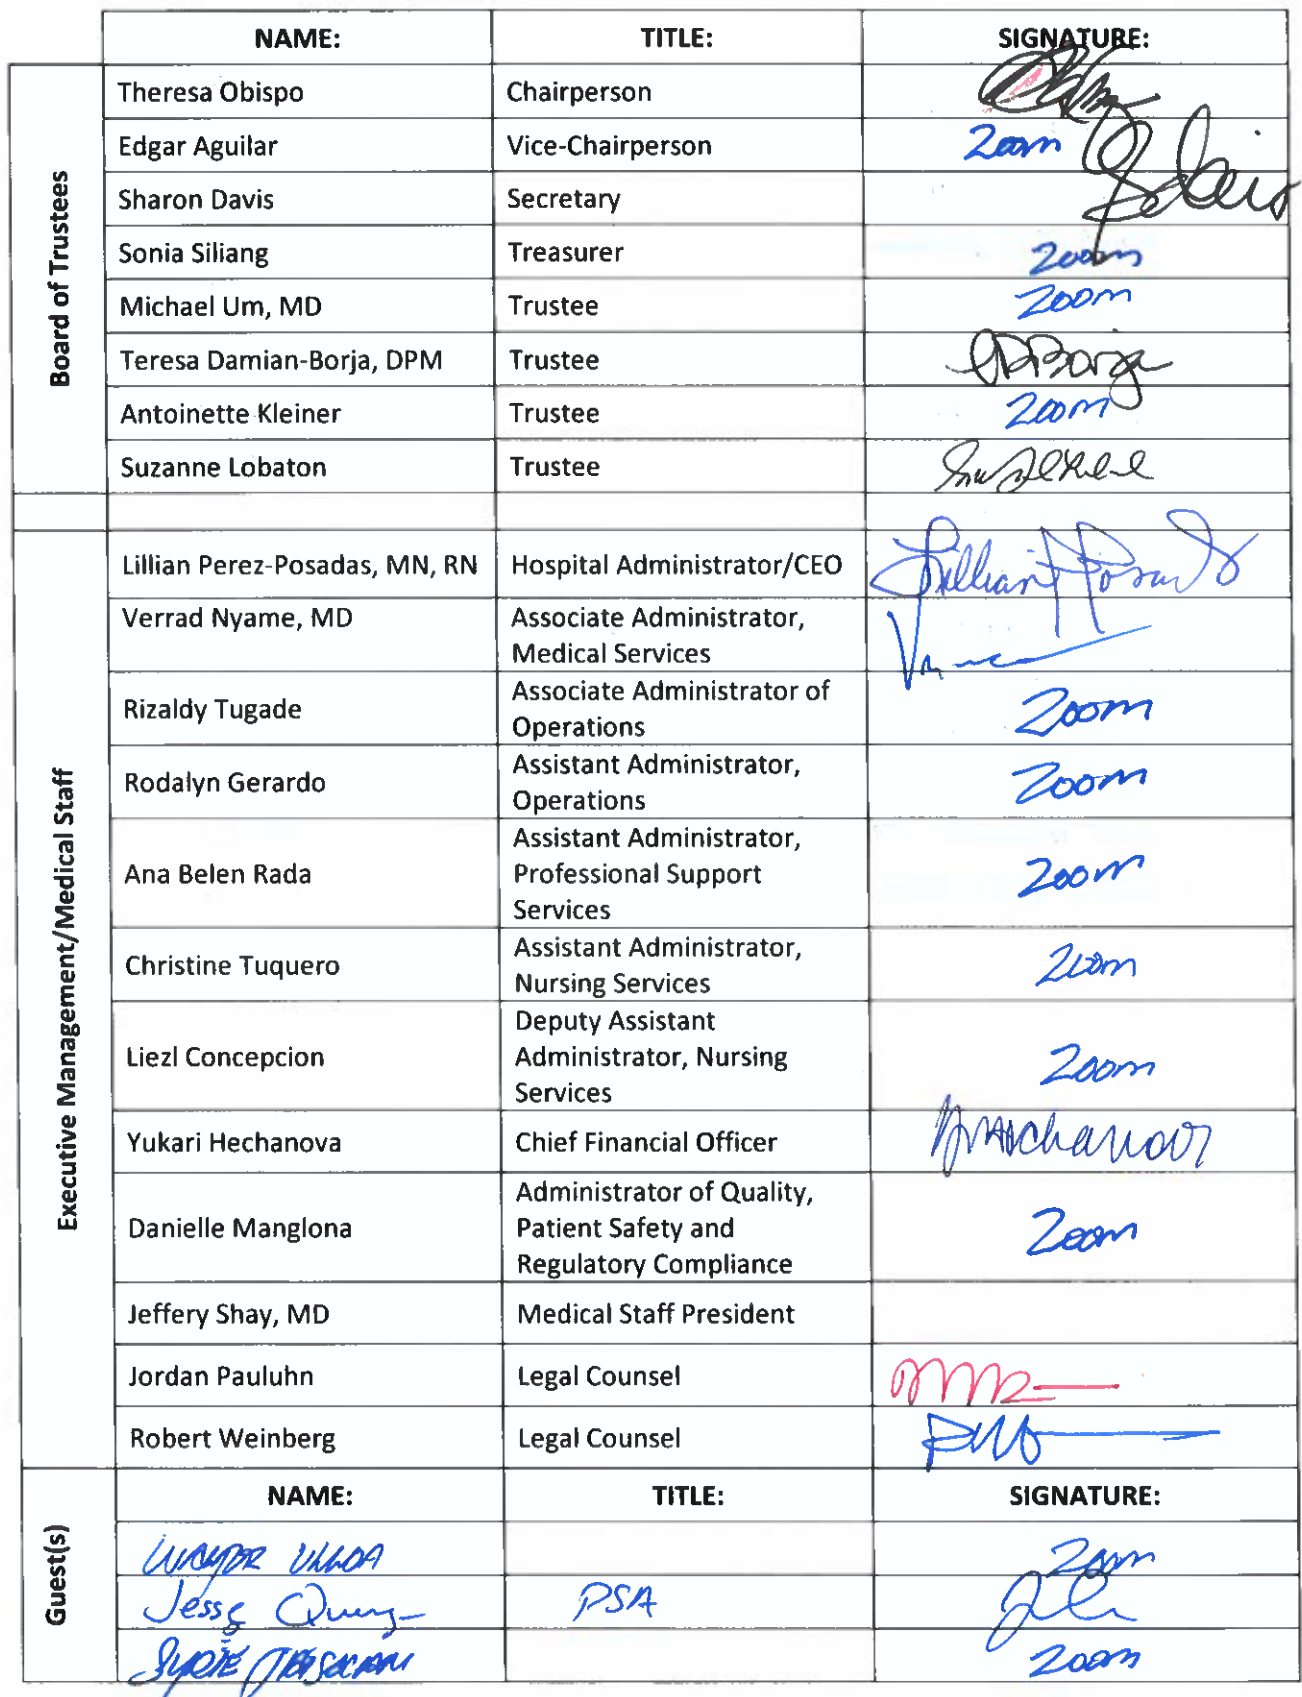 NAME: TITLE: SIGNATURE:
Board of Trustees
Theresa Obispo Chairperson
Edgar Aguilar Vice-Chairperson Zoom
Sharon Davis Secretary
Sonia Siliang Treasurer Zoom
Michael Um, MD Trustee Zoom
Teresa Damian-Borja, DPM Trustee
Antoinette Kleiner Trustee Zoom
Suzanne Lobaton Trustee
Executive Management/Medical Staff
Lillian Perez-Posadas, MN, RN Hospital Administrator/CEO Lillian Posadas
Verrad Nyame, MD Associate Administrator,
Medical Services
Rizaldy Tugade Associate Administrator of
Operations Zoom
Rodalyn Gerardo Assistant Administrator,
Operations Zoom
Ana Belen Rada Assistant Administrator,
Professional Support
Services Zoom
Christine Tuquero Assistant Administrator,
Nursing Services Zoom
Liezl Concepcion Deputy Assistant
Administrator, Nursing
Services Zoom
Yukari Hechanova Chief Financial Officer
Danielle Manglona Administrator of Quality,
Patient Safety and
Regulatory Compliance Zoom
Jeffery Shay, MD Medical Staff President
Jordan Pauluhn Legal Counsel
Robert Weinberg Legal Counsel
Guest(s)
NAME: TITLE: SIGNATURE:
Zoom
Jesse PSA
Zoom